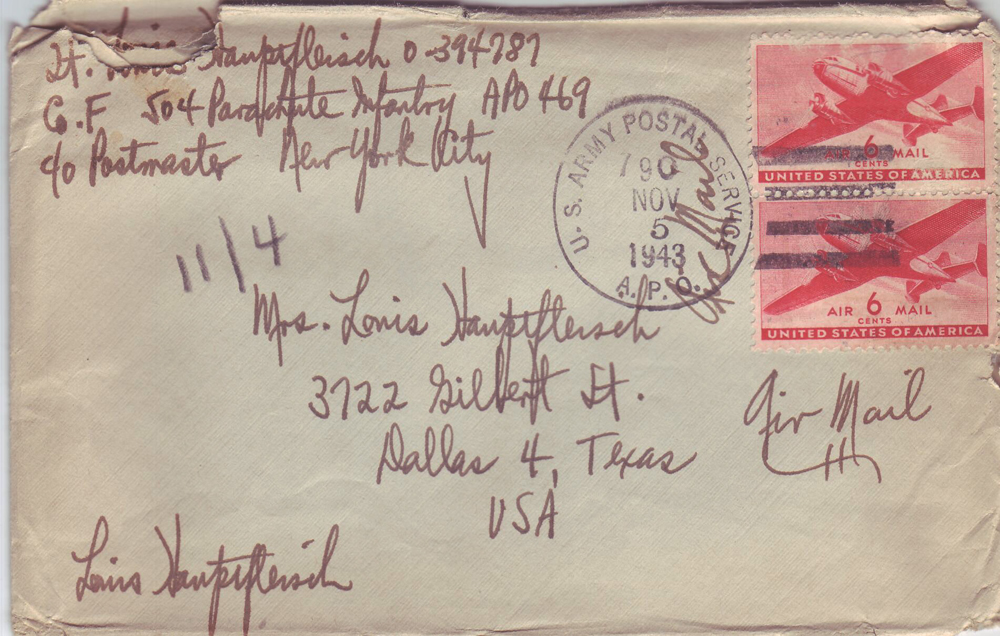 Lt. Louis Hauptfleisch O-394787
Co. F 504 Parachute Infantry APO 469
c/o Postmaster New York City
U.S. ARMY POSTAL SERVICE
790
NOV
5
1943
A.P.O.
Air Mail
AIR 6 MAIL
CENTS
UNITED STATES OF AMERICA
AIR 6 MAIL
CENTS
UNITED STATES OF AMERICA
11/4
Mrs. Louis Hauptfleisch
3722 Gilbert St.
Dallas 4, Texas
USA
Air Mail
Louis Hauptfleisch